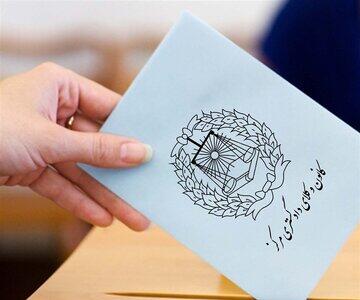 کانون وکلای دادگستری مرکز